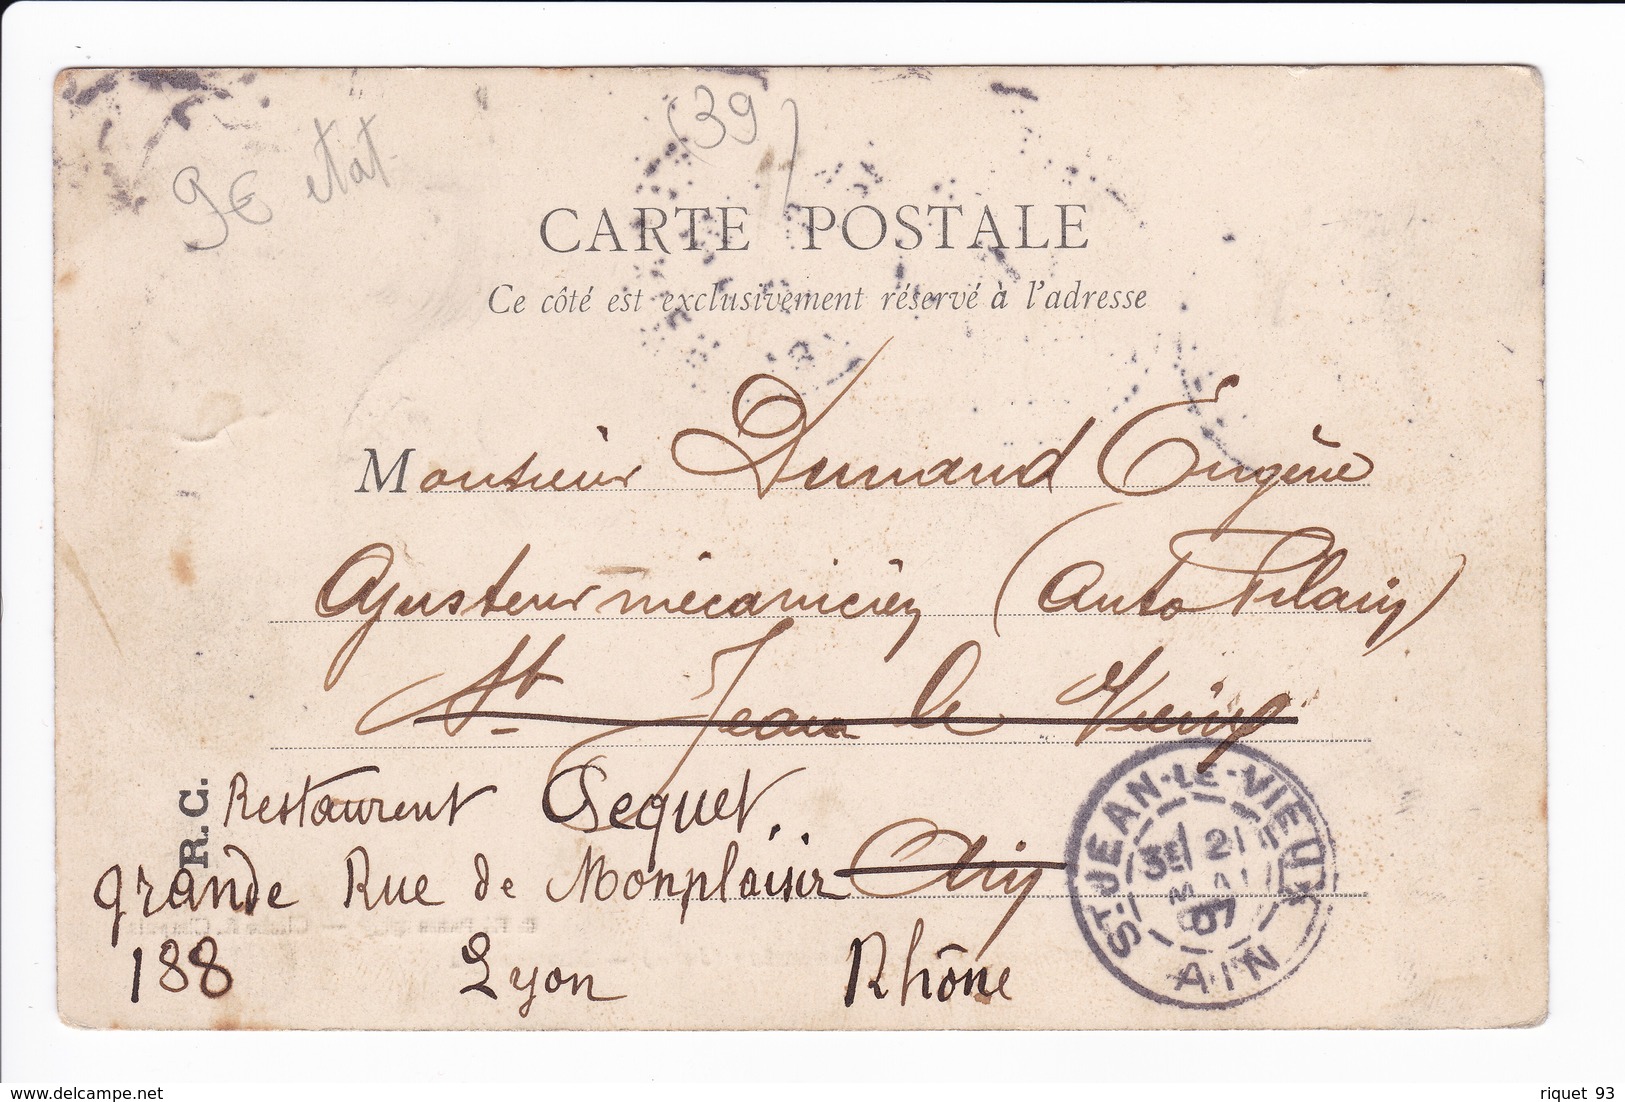 (39)
9€ etat
CARTE POSTALE
Ce côté est exclusivement réservé à l'adresse
Monsieur Dunand Eugène
Ajusteur mécanicien (Auto Pilain)
St Jean le Vieux
R.C.
Restaurent Sequet.
Ain
grande Rue de Monplaisir
188 Lyon Rhône
ST-JEAN-LE-VIEUX
3E 21
MAI
AIN
riquet 93